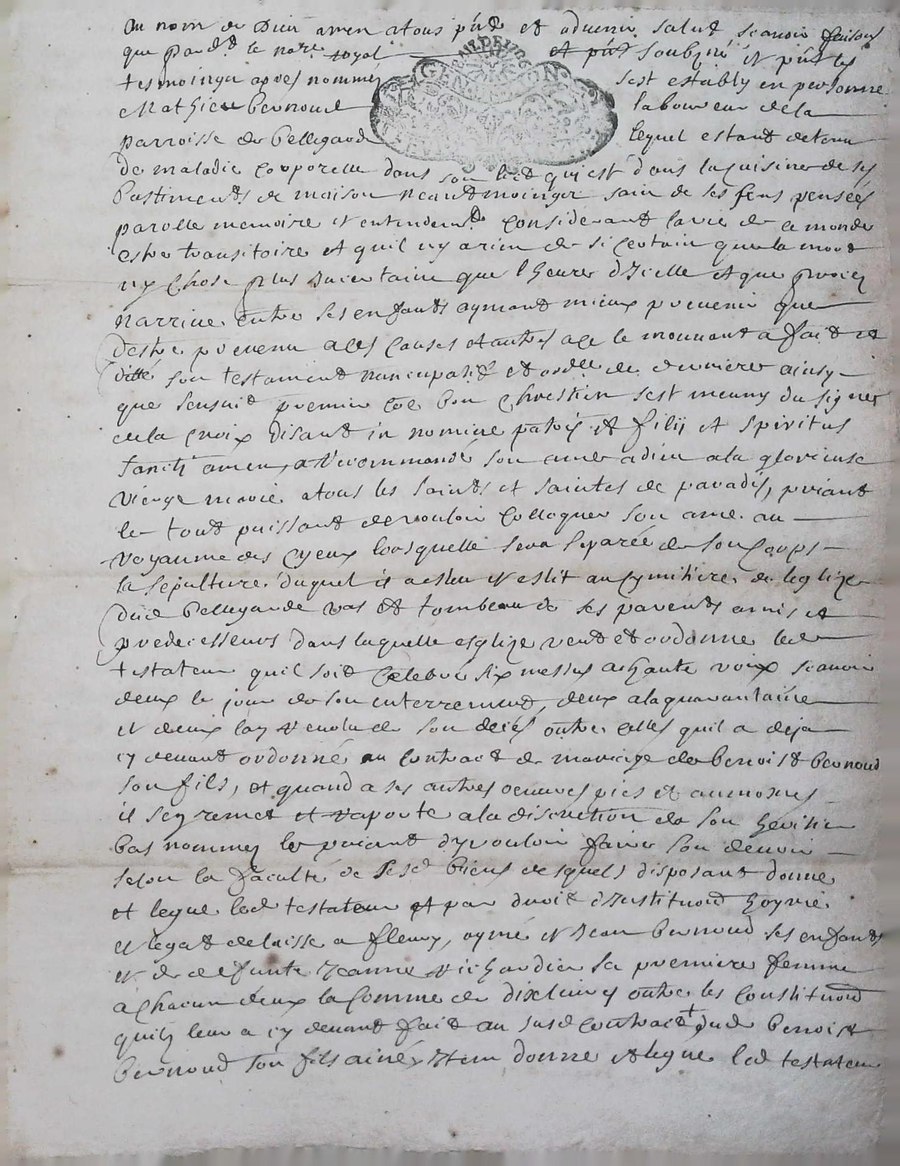 Au nom de Dieu amen a tous pñts et advenir salut scavoir faisons
que pardt le nore royal et pñt soubzné et pñts les
tesmoingz apres nommes sest estably en personne
Mathieu bernoud laboureur de la
parroisse de bellegarde lequel estant detenu
de maladie corporelle dans son lict qui est dans la cuisine de ses
bastiments de maison neantmoingz sain de ses sens pensées
parolle memoire et entendemt considerant la vie de ce monde
estre transitoire et quil ny a rien de si certain que la mort
ny chose plus incertaine que lheure dicelle et que procez
narrive entre ses enfants aymant mieux prevenir que
destre prevenu a ces causes et autres a ce le mouvant a fait et
dicté son testament nuncupatif et ordce de derniere ainsy
que sensuit premier coe bon chrestien sest muny du signe
de la croix disant in nomine patris et filij et spiritus
sancti amen, a recommandé son ame a dieu a la glorieuse
vierge marie a tous les saints et saintes de paradis, priant
le tout puissant de vouloir colloquer son ame au
royaume des cyeux lorsquelle sera separée de son corps
la sepulture duquel il a esleu et eslit au cymitiere de leglize
dud bellegarde vas et tombeau de ses parents amis et
predecesseurs dans laquelle esglize veut et ordonne led
testateur quil soit celebré six messes a haute voix scavoir
deux le jour de son enterrement, deux a la quarantaine
et deux lan revolu de son deces outre celles quil a deja
cy devant ordonné au contract de mariage de benoist bernoud
son fils, et quand a ses autres oeuvres pies et aumosnes
il sen remet et raporte a la discretion de son heritier
bas nommez le priant dy vouloir faire son devoir
selon la faculté de sesd biens desquels disposant donne
et legue led testateur et par droit dinstituon hoyrie
et legat delaisse a fleury, aymé et Jean bernoud ses enfants
et de defunte Jeanne richardier sa premiere femme
a chacun deux la somme de dix livres outre les constituon
quil leur a cy devant fait au susd contract dud benoist
bernoud son fils ainé, Item donne et legue led testateur